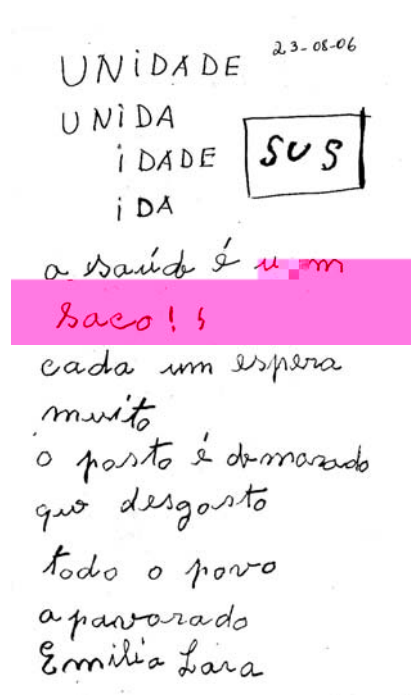 23-08-06
UNiDADE
UNiDA
iDADE
SUS
iDA
a saúde é um
saco!!
cada um espera
muito
o posto é demorado
que desgosto
todo o povo
apavorado
Emilia Lara